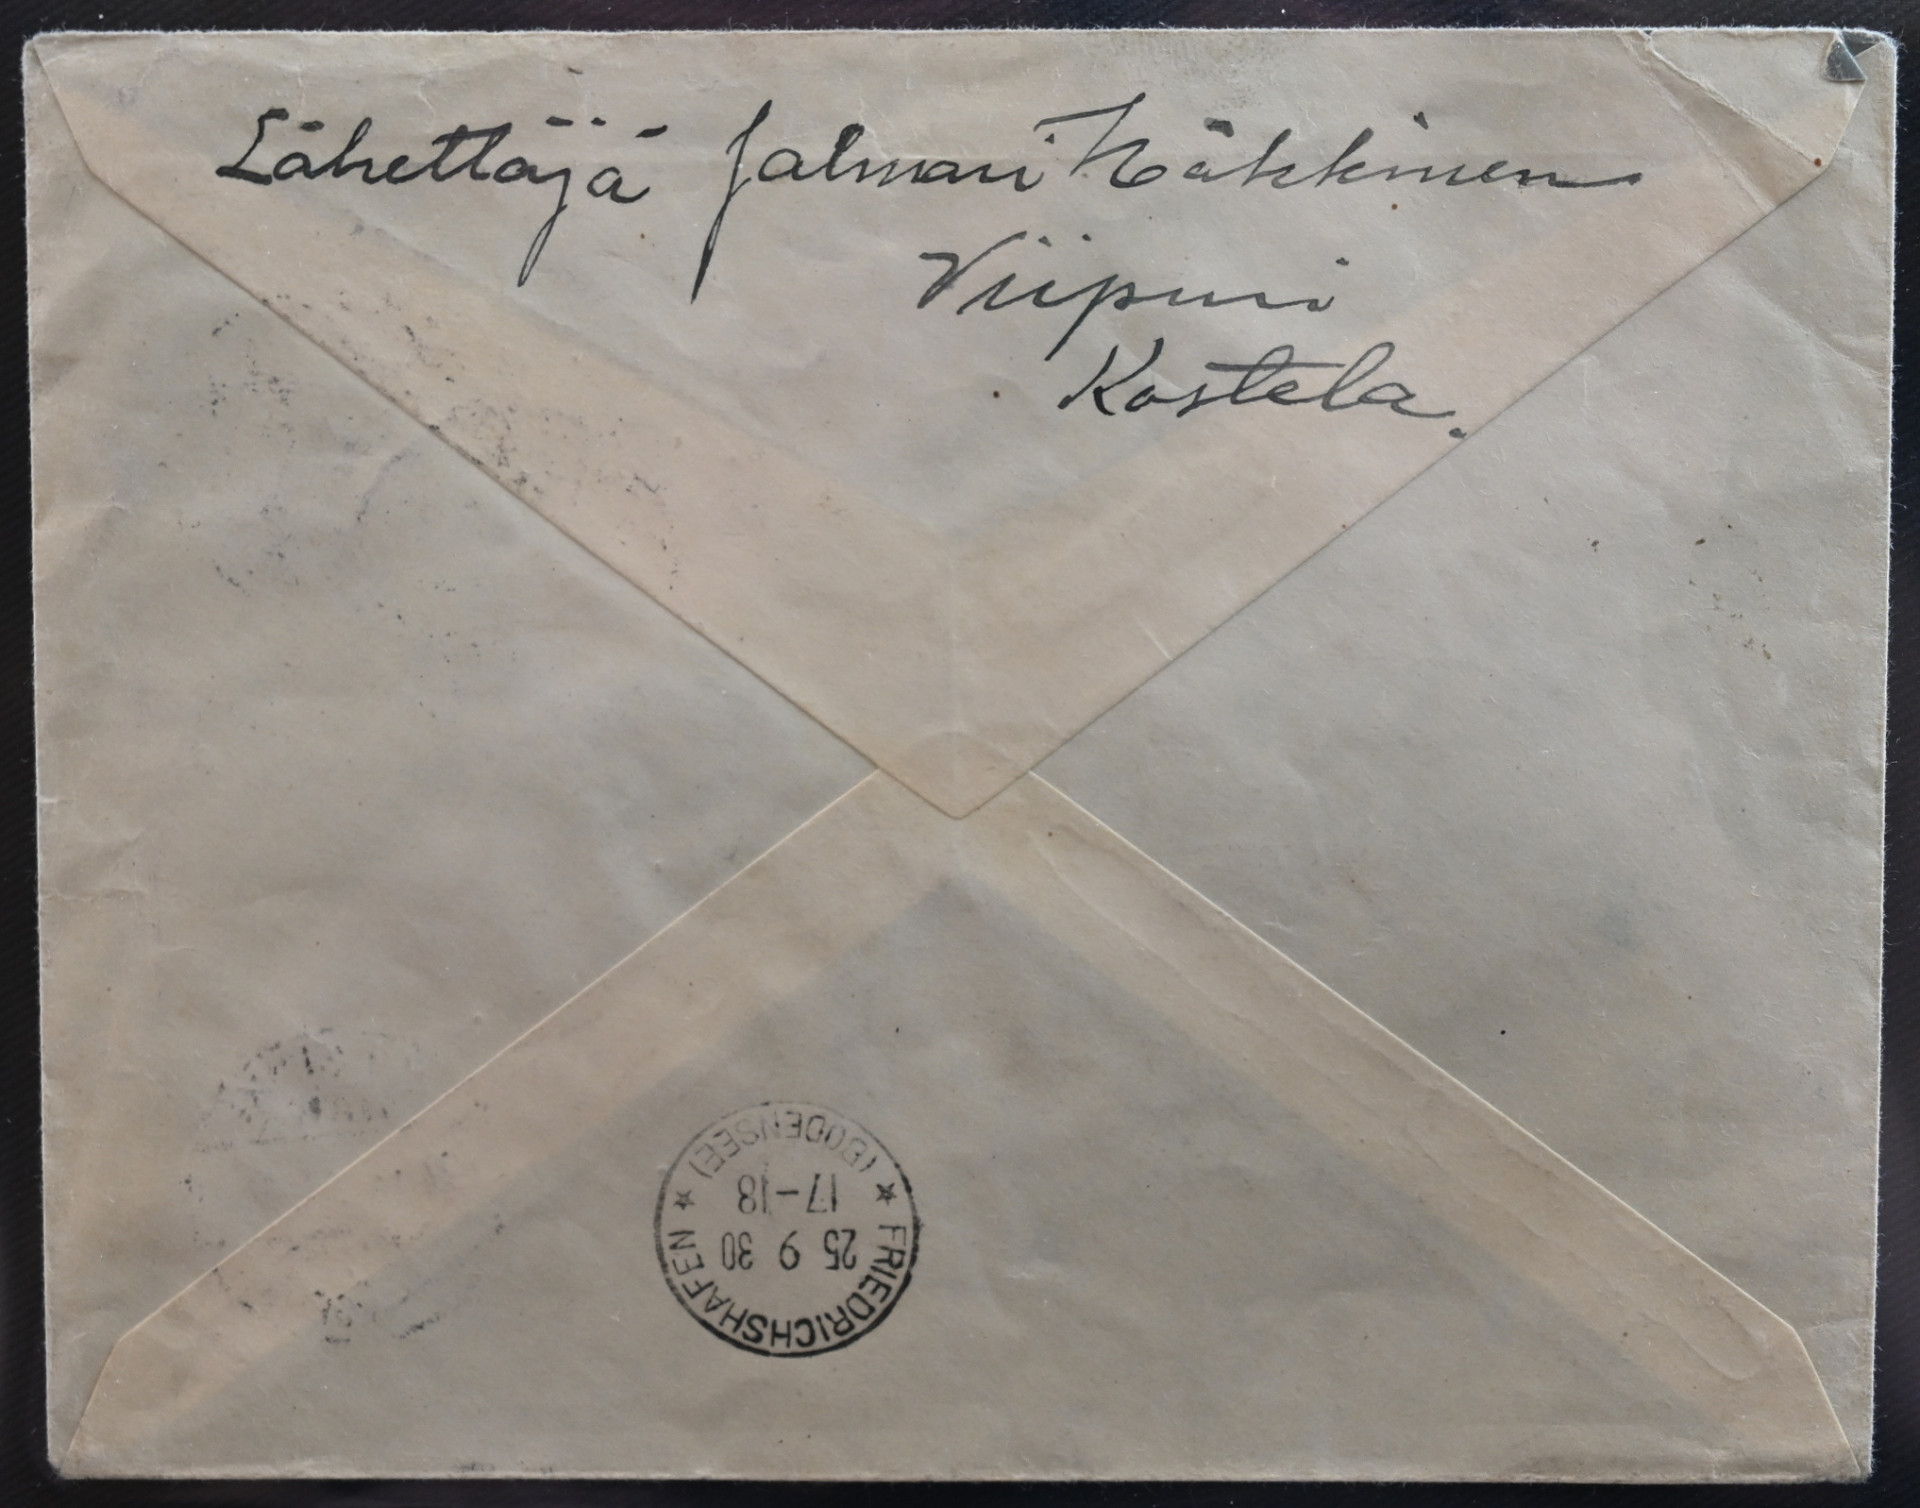 Lähettäjä Jalmari Häkkinen
Viipuri
Kostela.
FRIEDRICHSHAFEN
25 9 30
17-18
(BODENSEE)